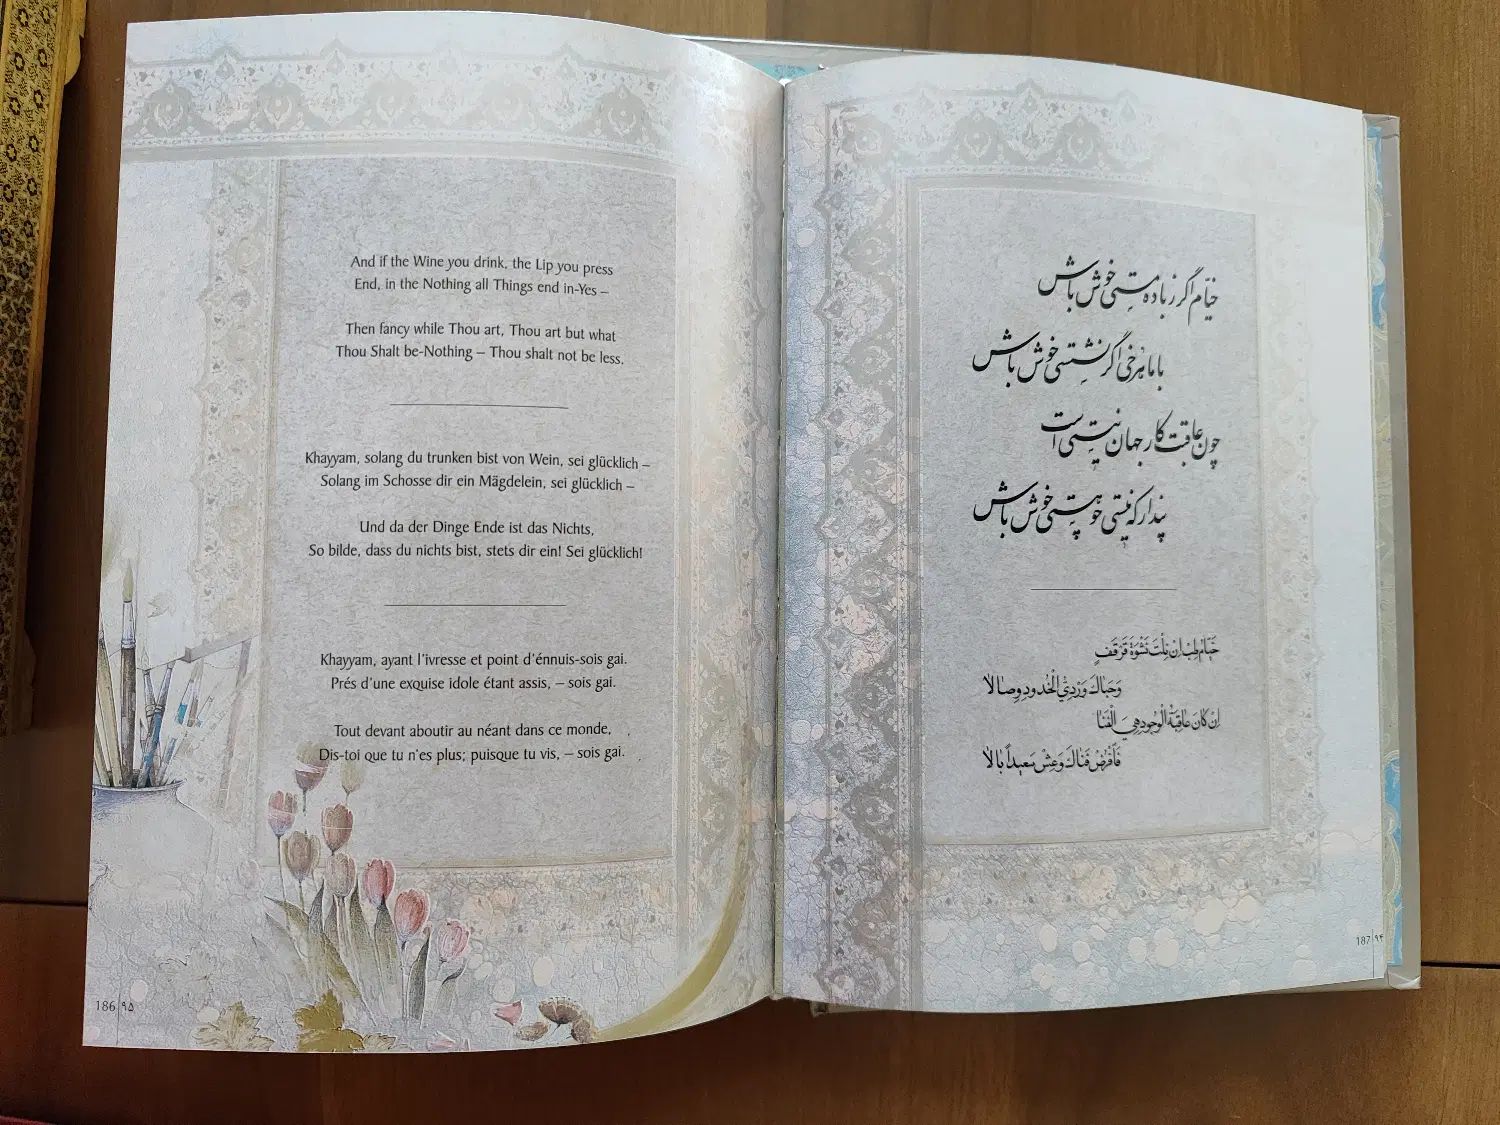 And if the Wine you drink, the Lip you press
End, in the Nothing all Things end in-Yes –
Then fancy while Thou art, Thou art but what
Thou Shalt be-Nothing – Thou shalt not be less.
Khayyam, solang du trunken bist von Wein, sei glücklich –
Solang im Schosse dir ein Mägdelein, sei glücklich –
Und da der Dinge Ende ist das Nichts,
So bilde, dass du nichts bist, stets dir ein! Sei glücklich!
Khayyam, ayant l'ivresse et point d'énnuis-sois gai.
Prés d'une exquise idole étant assis, – sois gai.
Tout devant aboutir au néant dans ce monde,
Dis-toi que tu n'es plus; puisque tu vis, – sois gai.
186 ۹۵
خیّام اگر ز باده مستی خوش باش
با ماهرخی اگر نشستی خوش باش
چون عاقبت کار جهان نیستی است
پندار که نیستی چو هستی خوش باش
خَيّام طِب اِنْ نِلْتَ نَشْوَةَ قَرْقَفٍ
وَحَبٰاكَ وَرْدِيُّ الْخُدودِ وِصٰالاٰ
اِنْ كٰانَ عٰاقِبَةُ الْوُجودِ هِيَ الْفَنٰا
فَافْرِضْ فَنٰاكَ وَعِشْ سَعيداً بٰالاٰ
187 ۹۴